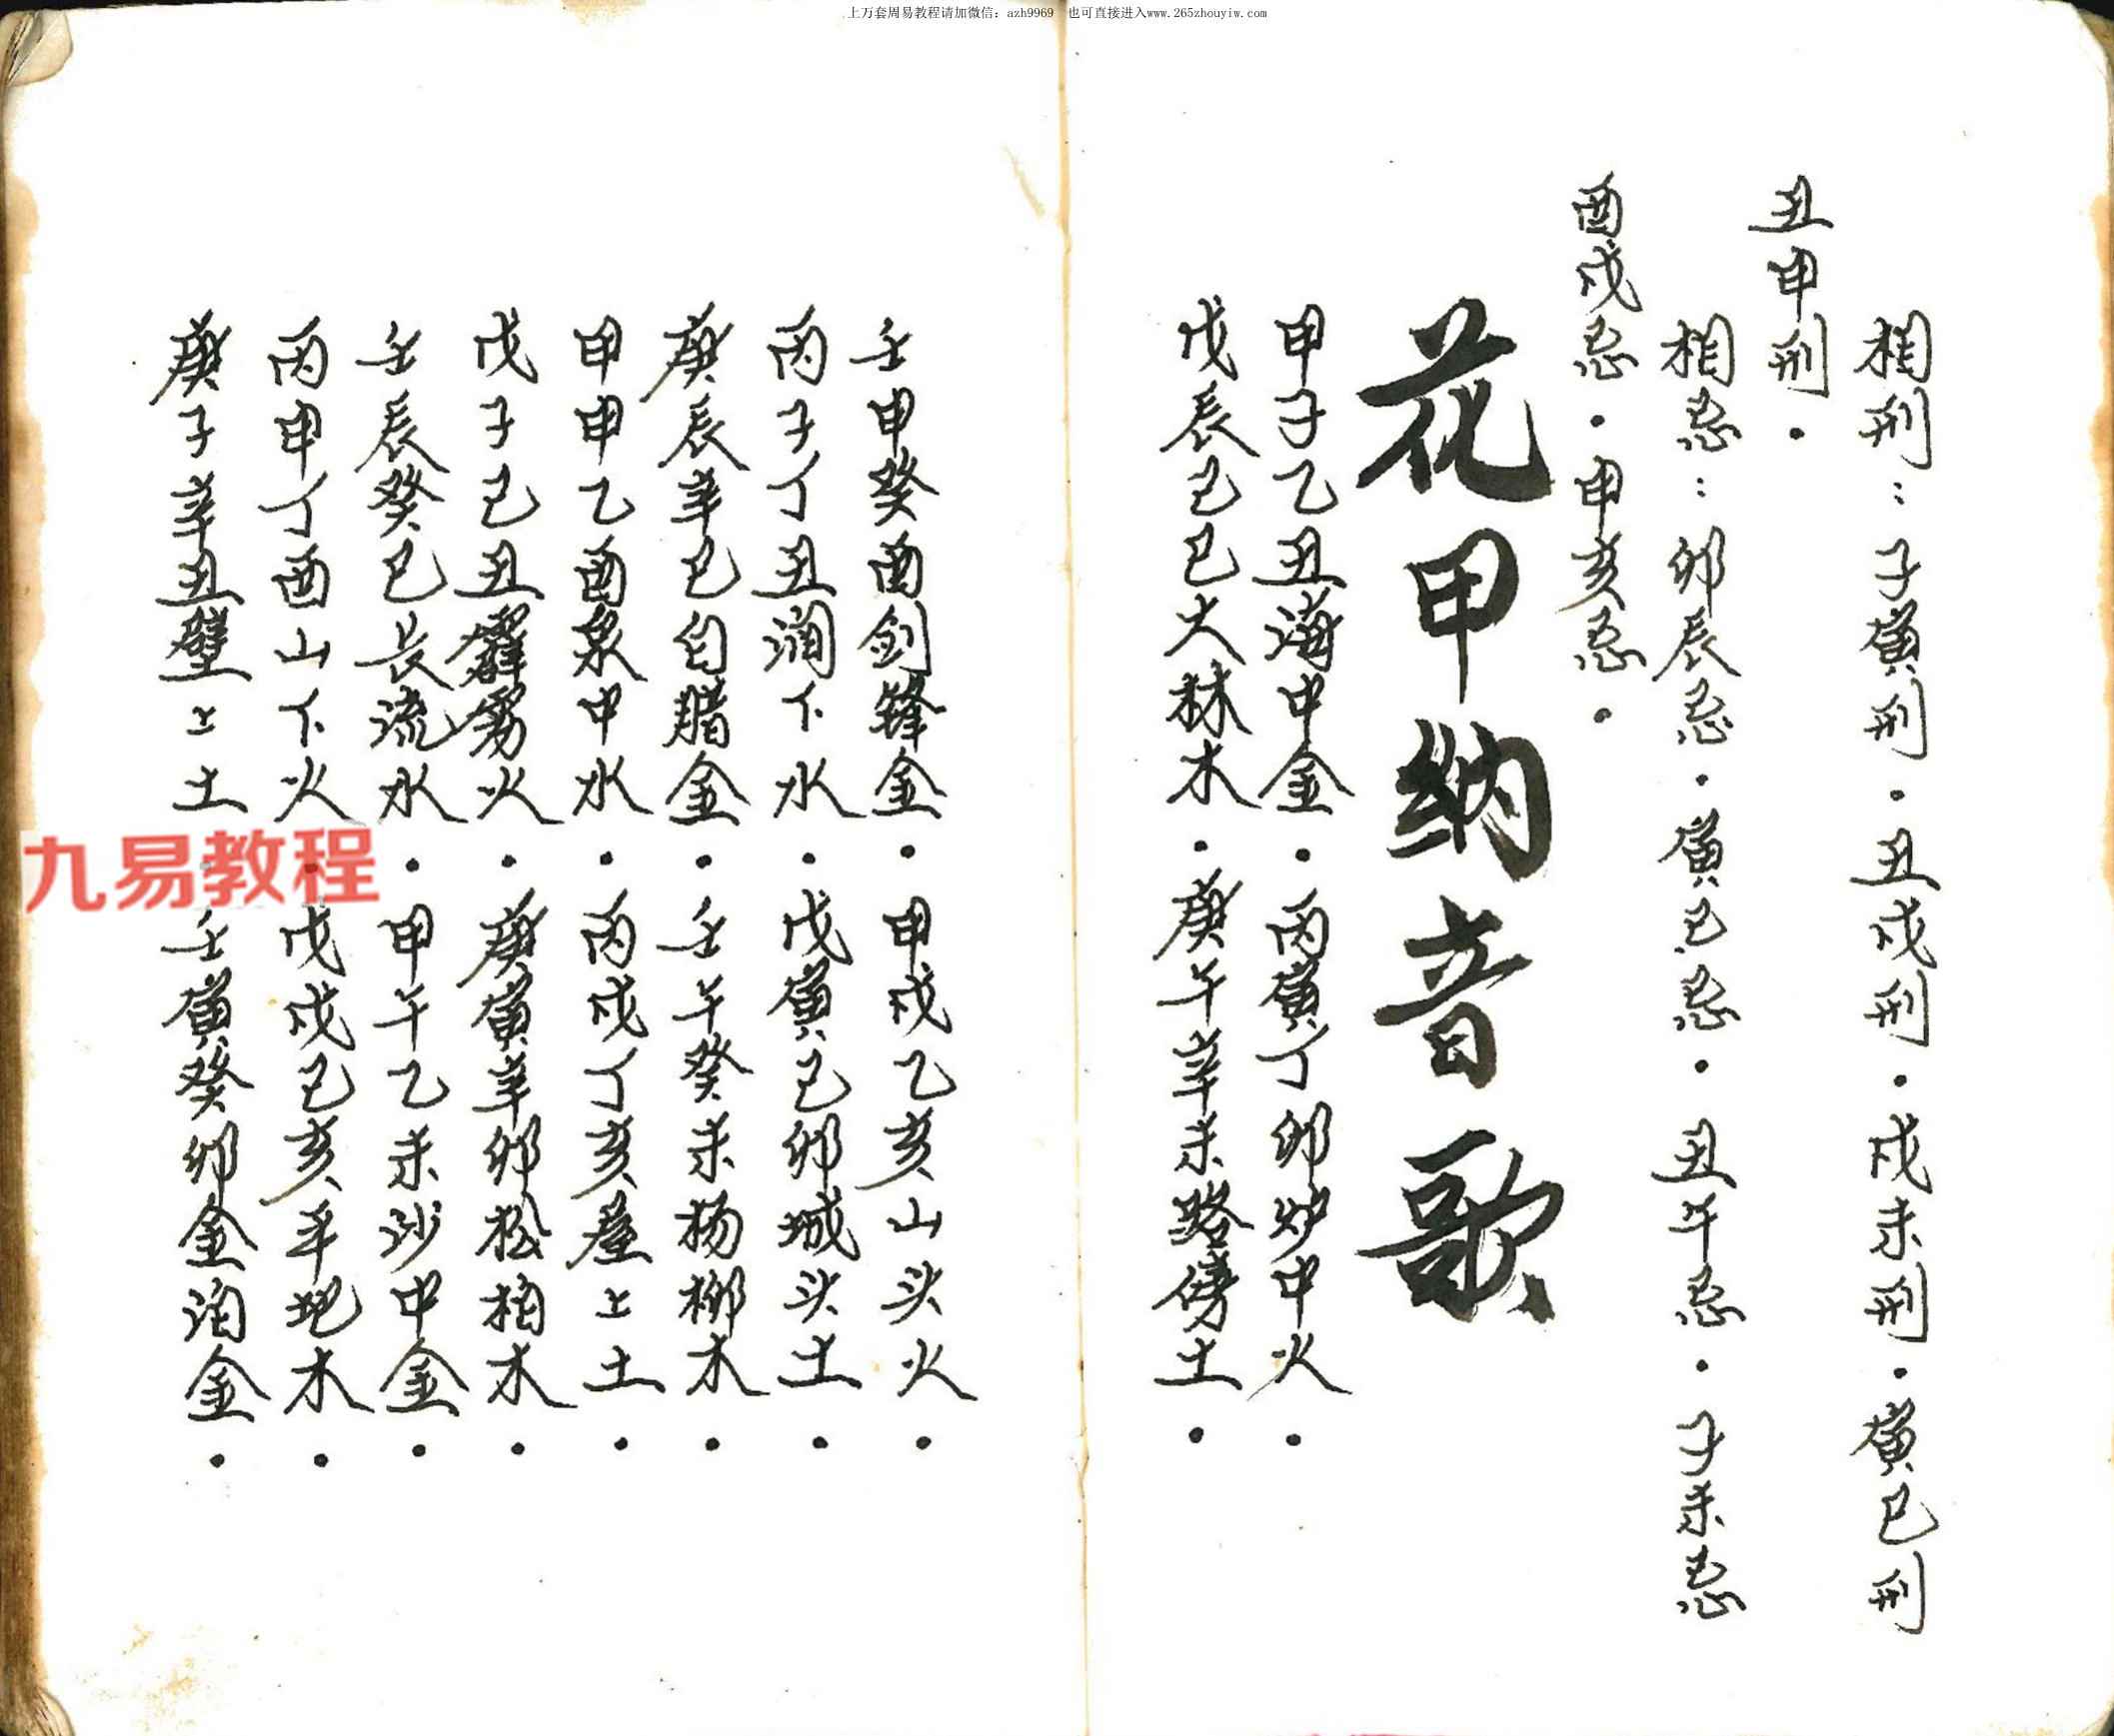 上万套周易教程请加微信：azh9969 也可直接进入www.265zhouyiw.com
相刑：子寅刑．丑戌刑．戌未刑．寅巳刑
丑申刑．
相忌：卯辰忌．寅巳忌．丑午忌．子未忌
酉戌忌．申亥忌．
花甲纳音歌
甲子乙丑海中金．丙寅丁卯炉中火．
戊辰己巳大林木．庚午辛未路傍土．
壬申癸酉剑锋金．甲戌乙亥山头火．
丙子丁丑涧下水．戊寅己卯城头土．
庚辰辛巳白腊金．壬午癸未杨柳木．
甲申乙酉泉中水．丙戌丁亥屋上土．
戊子己丑霹雳火．庚寅辛卯松柏木．
壬辰癸巳长流水．甲午乙未沙中金．
丙申丁酉山下火．戊戌己亥平地木．
庚子辛丑壁上土．壬寅癸卯金泊金．
九易教程